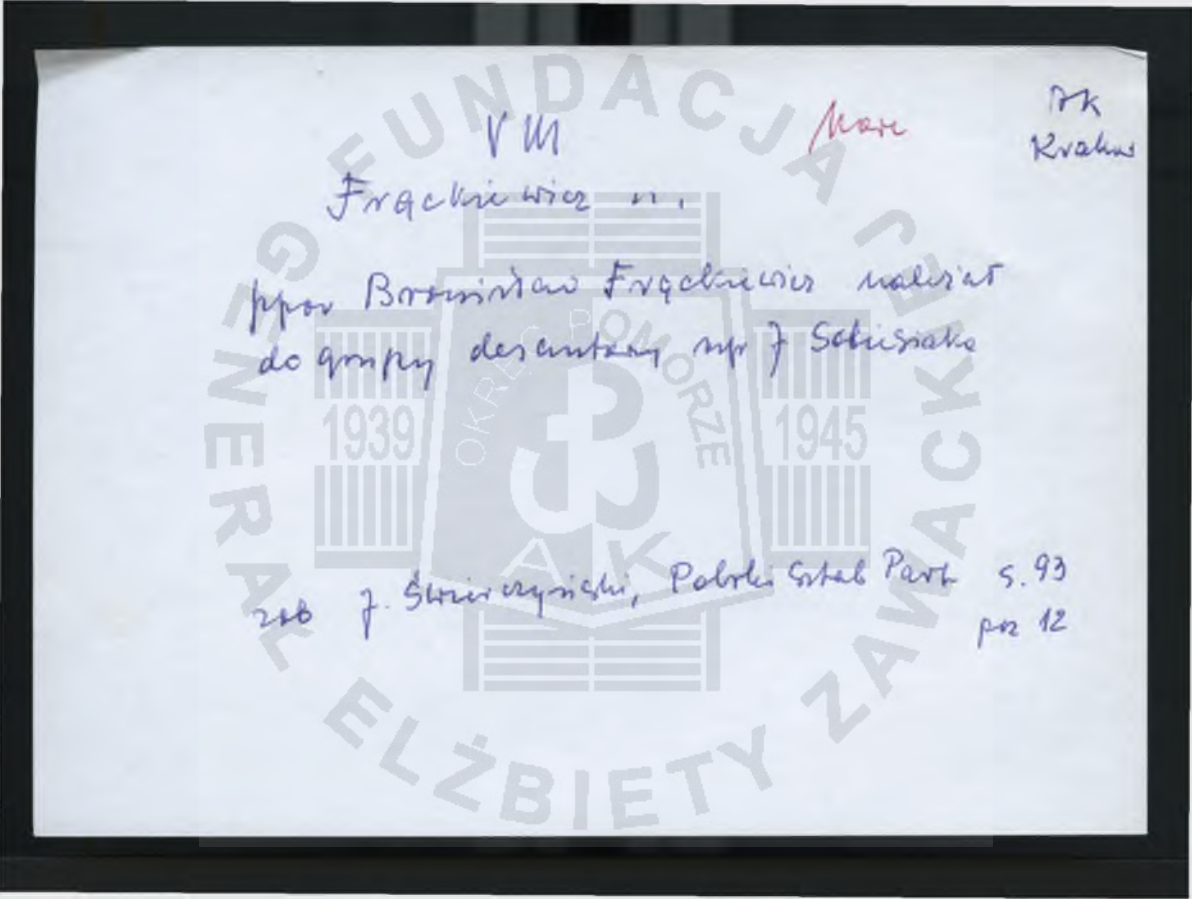 VIII
AK
Kraków
Frąckiewicz n.
ppor Bronisław Frąckiewicz należał
do grupy desantowej mjr J Sobiesiaka
zob J. Świerczyński, Polski Sztab Part s. 93
poz 12
FUNDACJA
GENERAŁ ELŻBIETY ZAWACKIEJ
OKRĘG POMORZE
1939
1945
AK